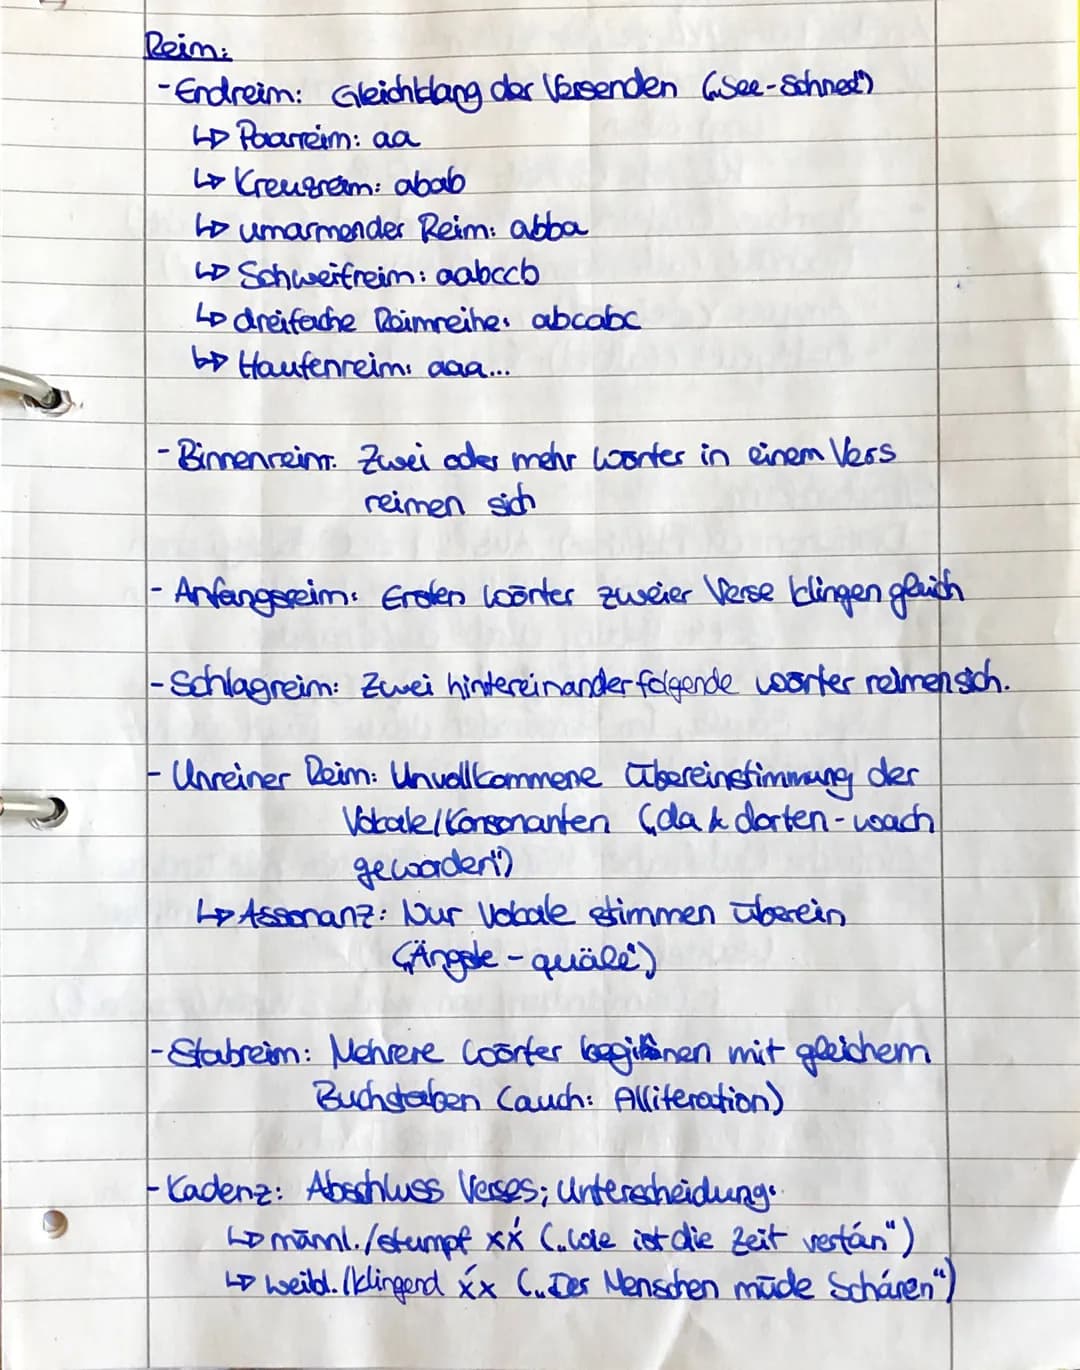 Reim:
- Endreim: Gleichklang der Versenden („See - Schnee“)
↳ Paarreim: aa
↳ Kreuzreim: abab
↳ umarmender Reim: abba
↳ Schweifreim: aabccb
↳ dreifache Reimreihe: abcabc
↳ Haufenreim: aaa...
- Binnenreim: Zwei oder mehr Wörter in einem Vers
reimen sich
- Anfangsreim: Ersten Wörter zweier Verse klingen gleich
- Schlagreim: Zwei hintereinander folgende Wörter reimen sich.
- Unreiner Reim: Unvollkommene Übereinstimmung der
Vokale/Konsonanten („da & dorten - wach
geworden“)
↳ Assonanz: Nur Vokale stimmen überein
(„Ängste - quäle“)
- Stabreim: Mehrere Wörter beginnen mit gleichem
Buchstaben (auch: Alliteration)
- Kadenz: Abschluss Verses; Unterscheidung:
↳ männl./stumpf xx́ („Wie ist die Zeit vertán“)
↳ weibl./klingend x́x („Der Menschen müde Scháren“)